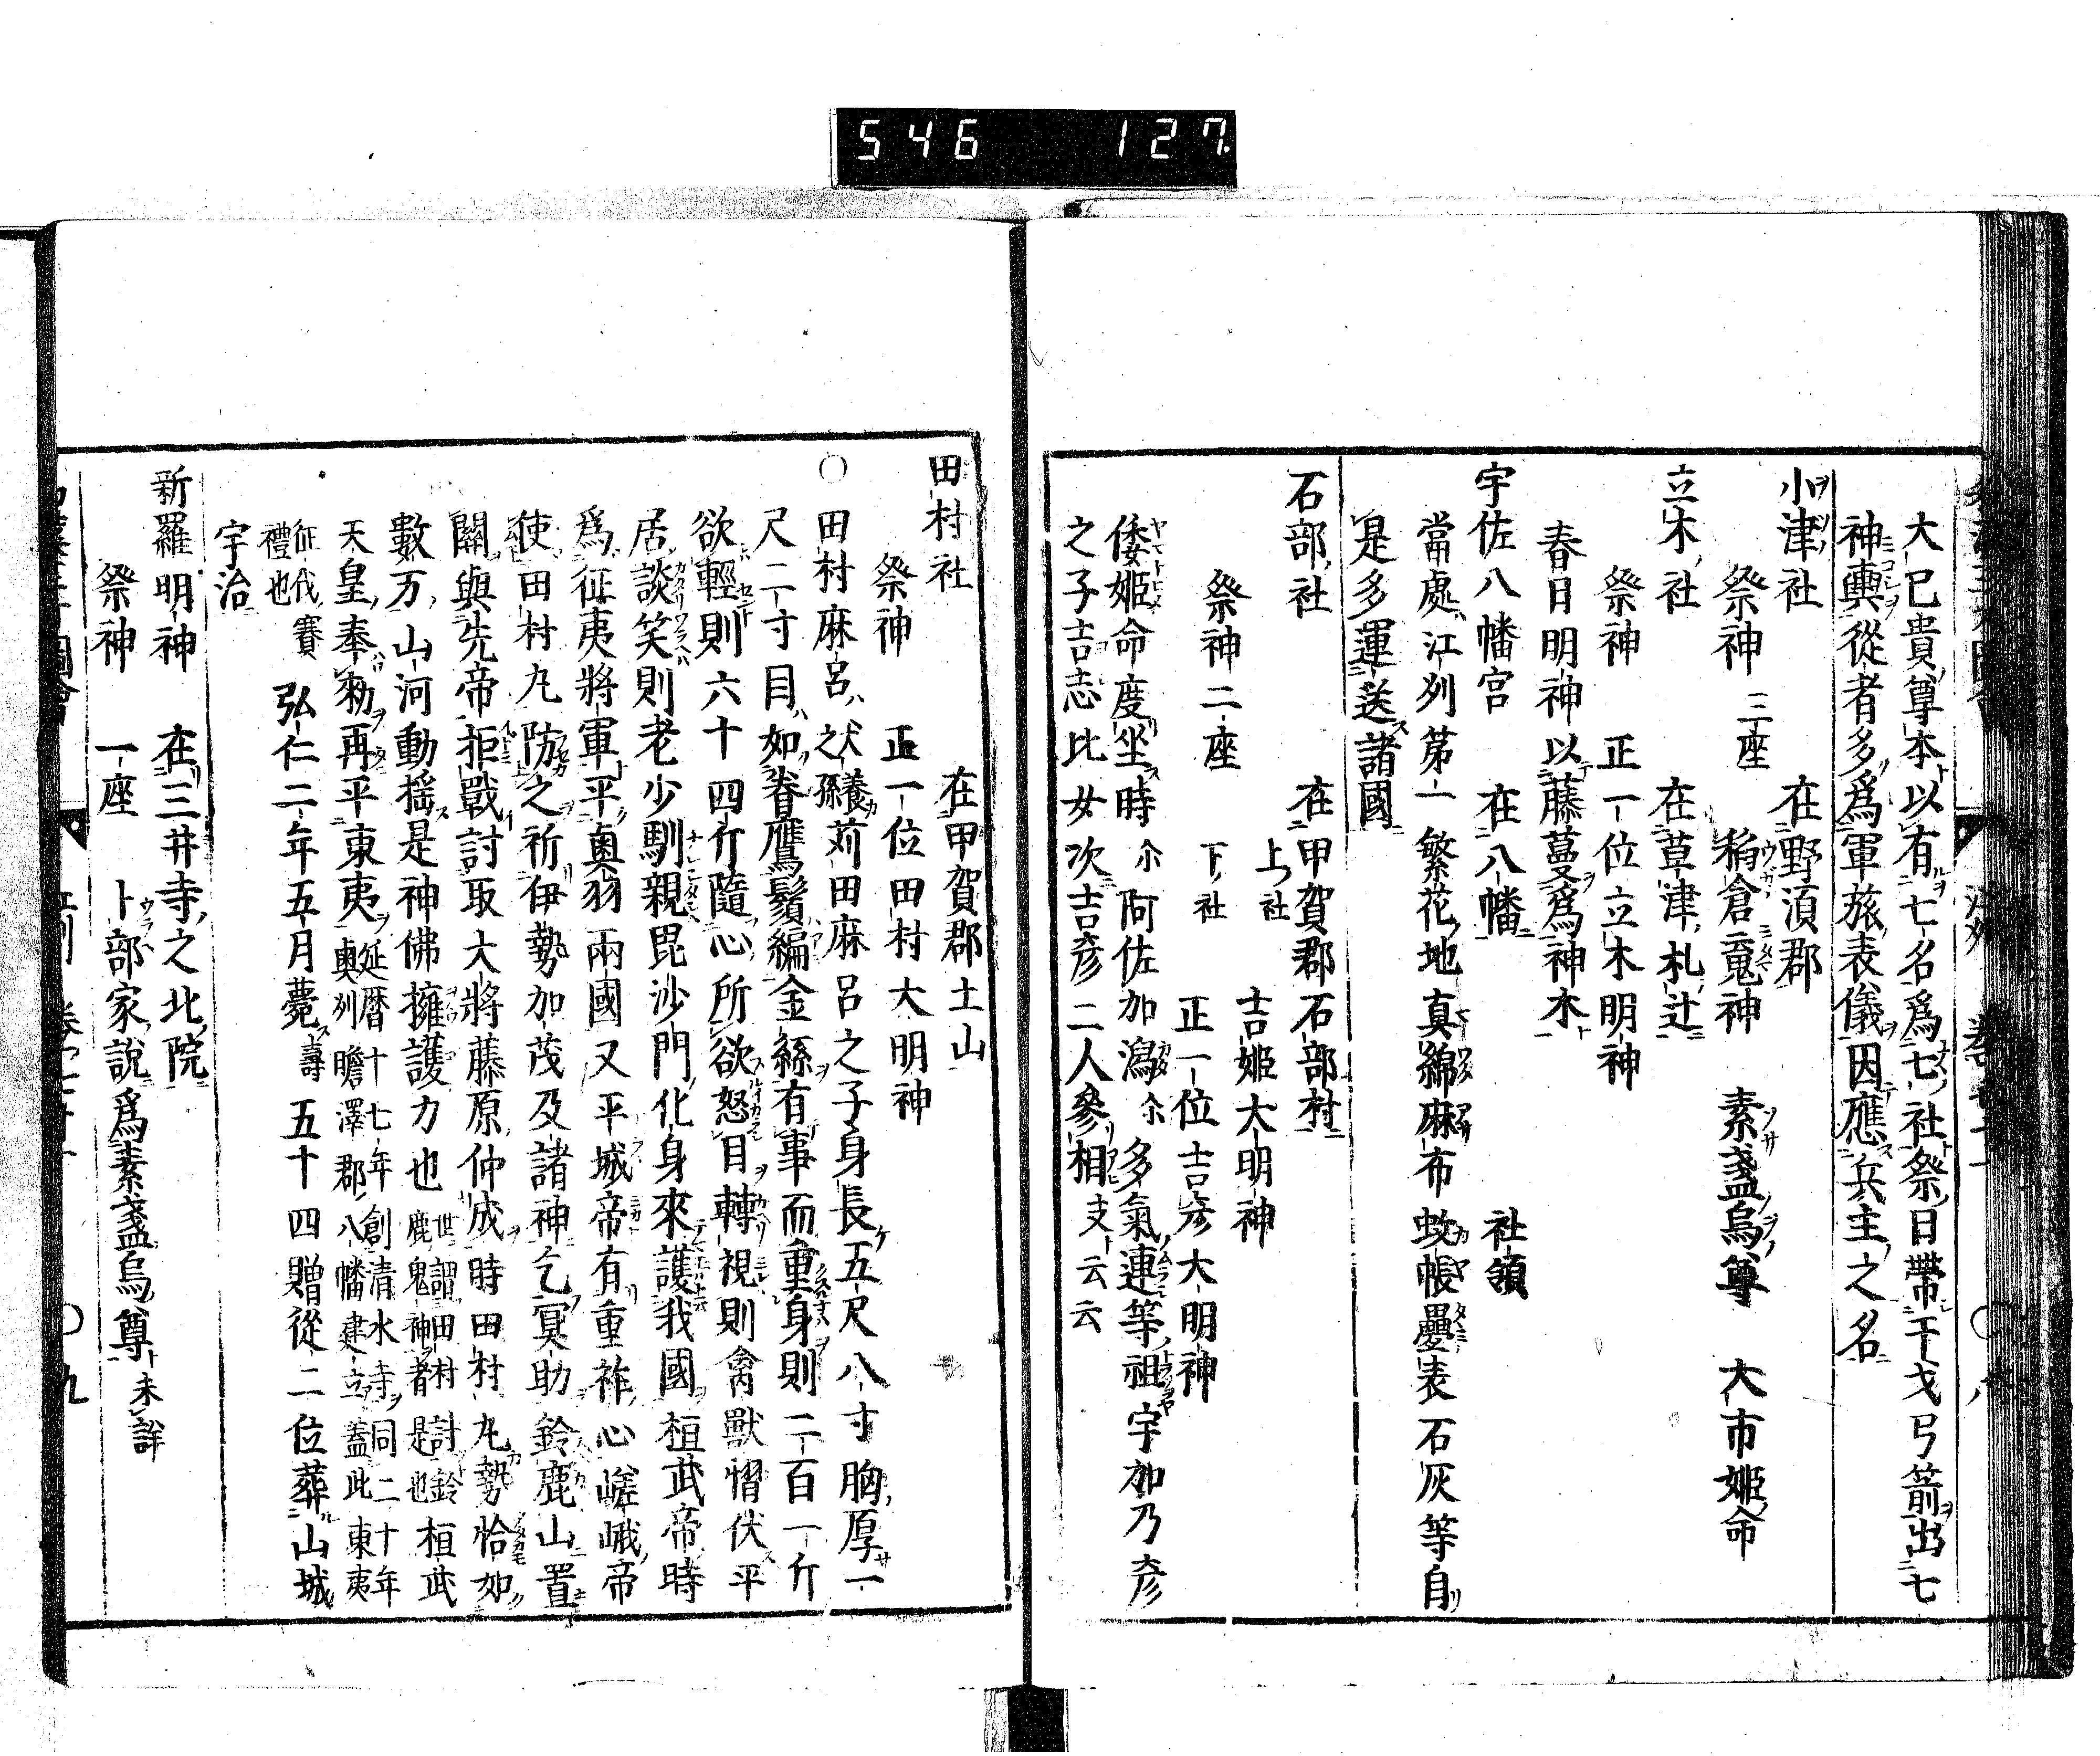 546 127
大已貴尊本以有七名爲七社祭日帶干戈弓箭出七
神輿從者多爲軍旅表儀因應兵主之名
小津社 在野湏郡
祭神 三座 稲倉䰟神 素盞烏尊 大市姫命
立木社 在草津札辻
祭神 正一位立木明神
春日明神以藤蔓爲神木
宇佐八幡宮 在八幡 社領
當處江刕第一繁花地真綿麻布蚊帳疊表石灰等自
是多運送諸國
石部社 在甲賀郡石部村
祭神二座 上社 吉姬大明神
下社 正一位吉彦大明神
倭姬命度坐時尒阿佐加潟尒多氣連等祖宇加乃彦
之子吉志比女次吉彦二人參相支云云
田村社 在甲賀郡土山
祭神 正一位田村大明神
○田村麻呂犬養之孫苅田麻呂之子身長五尺八寸胸厚一
尺二寸目如眷鷹鬚編金絲有事而重身則二百一斤
欲輕則六十四斤隨心所欲怒目轉視則禽獸慴伏平
居談笑則老少馴親毘沙門化身來護我國桓武帝時
爲征夷將軍平奥羽兩國又平城帝有重祚心嵯峨帝
使田村丸防之祈伊勢加茂及諸神乞冥助鈴鹿山置
關與先帝拒戰討取大將藤原仲成時田村丸勢恰如
數万山河動揺是神佛擁護力也 世謂田村討鈴鹿鬼神者是也 桓武
天皇奉勅再平東夷 延暦十七年創清水寺同二十年奧刕膽澤郡八幡建立蓋此東夷
征伐賽禮也 弘仁二年五月薨壽五十四贈從二位葬山城
宇治
新羅明神 在三井寺之北院
祭神 一座 卜部家說爲素盞烏尊未詳